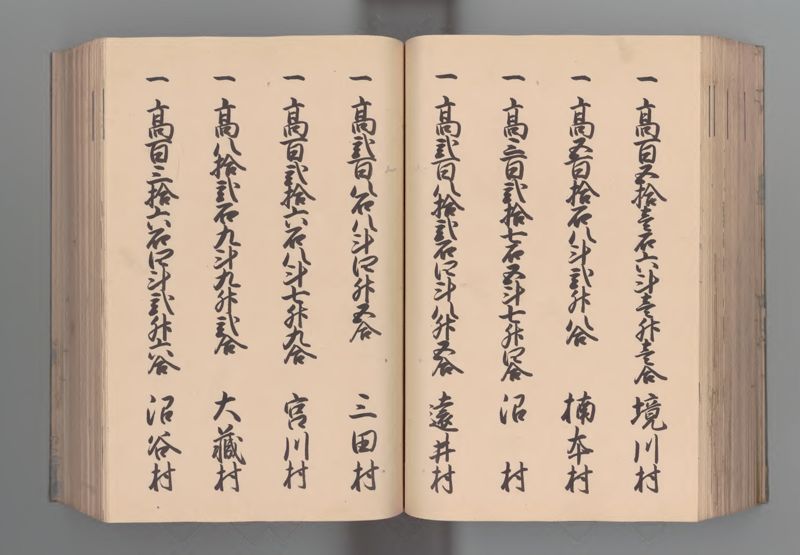 一 高百五拾壱石六斗壱升壱合 境川村
一 高五百拾石八斗弐升八合 楠本村
一 高三百弐拾七石五斗七升四合 沼村
一 高弐百八拾弐石四斗八升五合 遠井村
一 高弐百八石八斗四升五合 三田村
一 高百弐拾六石八斗七升九合 宮川村
一 高八拾弐石九斗九升弐合 大蔵村
一 高百三拾六石四斗弐升六合 沼谷村